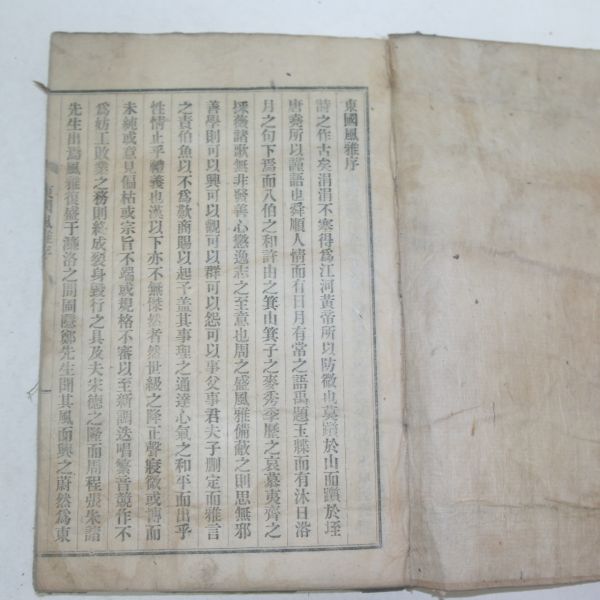 東國風雅序
詩之作古矣涓涓不塞得爲江河黃帝所以防微也莫躓於山而躓於垤
唐堯所以謹語也舜順人情而有日月有常之語禹題玉牒而有沐日浴
月之句下焉而八伯之和許由之箕山箕子之麥秀季歷之哀慕夷齊之
採薇諸歌無非發善心懲逸志之至意也周之盛風雅備蔽之則思無邪
善學則可以興可以觀可以群可以怨可以事父事君夫子刪定而雅言
之責伯魚以不爲歎商賜以起予盖其事理之通達心氣之和平而出乎
性情止乎禮義也漢以下亦不無傑然者然世級之降正聲寢微或博而
未純或意見偏枯或宗旨不端或規格不審以至新調迭唱繁音競作不
爲妨工敗業之務則終成喪身毀行之具及夫宋德之隆而周程張朱諸
先生出焉風雅復盛于濂洛之間圃隱鄭先生聞其風而興之蔚然爲東